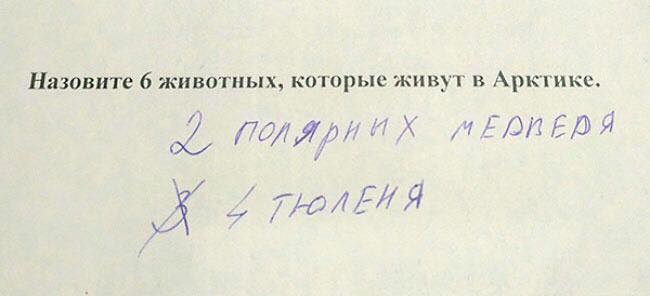 Назовите 6 животных, которые живут в Арктике.
2 полярных медведя
4 тюленя